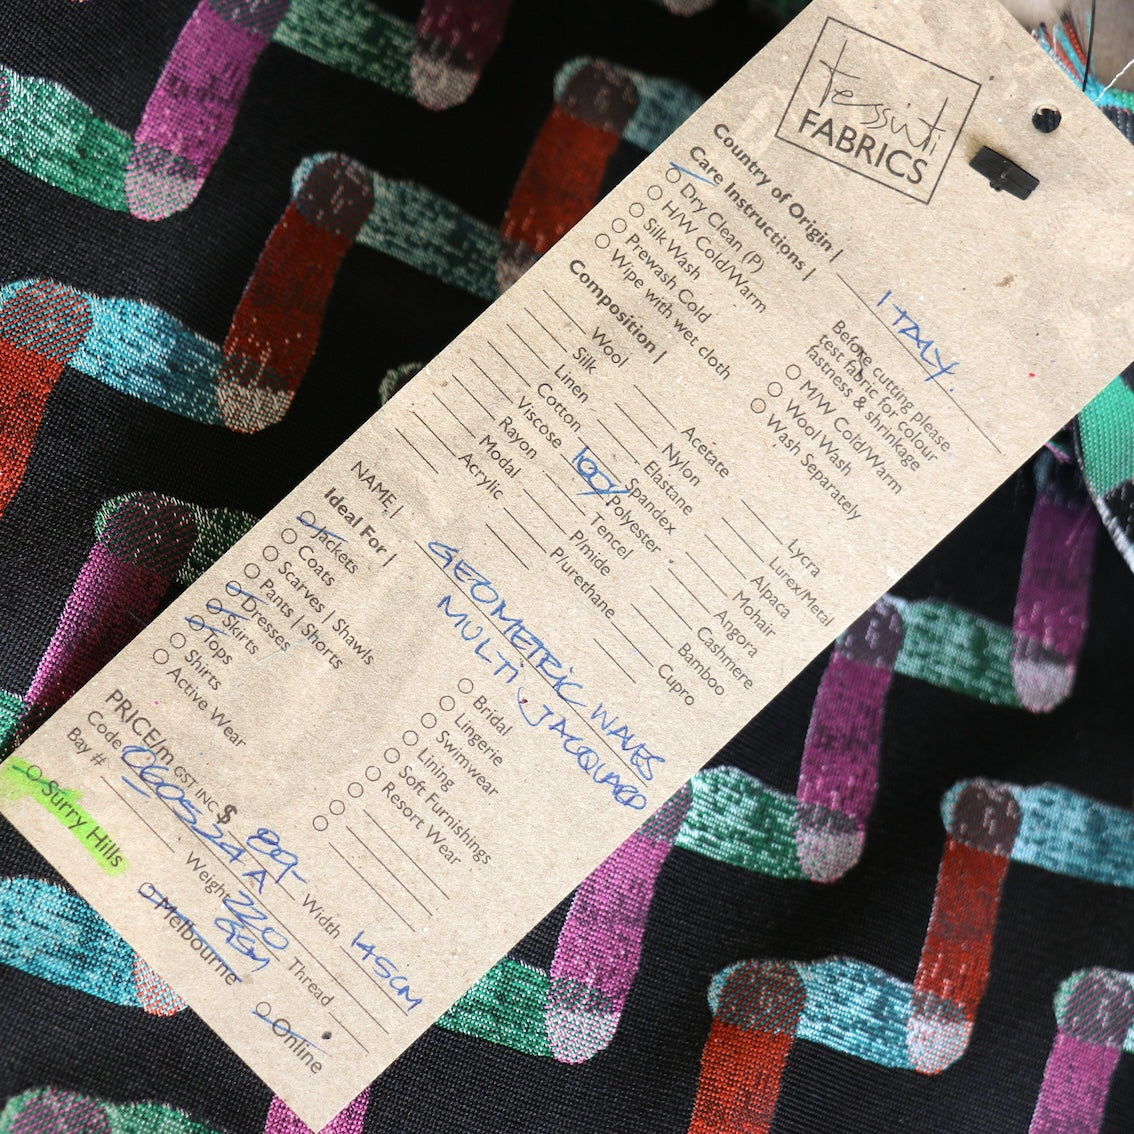 tessuti
FABRICS
Country of Origin | ITALY.
Care Instructions |
Dry Clean (P)
H/W Cold/Warm
Silk Wash
Prewash Cold
Wipe with wet cloth
Before cutting please
test fabric for colour
fastness & shrinkage
M/W Cold/Warm
Wool Wash
Wash Separately
Composition |
Wool
Silk
Linen
Cotton
Viscose
Rayon
Modal
Acrylic
Acetate
Nylon
Elastane
Spandex
100% Polyester
Tencel
P/mide
P/urethane
Lycra
Lurex/Metal
Alpaca
Mohair
Angora
Cashmere
Bamboo
Cupro
NAME | GEOMETRIC WAVES
MULTI JACQUARD
Ideal For |
Jackets
Coats
Scarves | Shawls
Pants | Shorts
Dresses
Skirts
Tops
Shirts
Active Wear
Bridal
Lingerie
Swimwear
Lining
Soft Furnishings
Resort Wear
PRICE/m GST INC. $ 89- Width 145CM
Code C60524A Weight 220 GSM Thread
Bay #
Surry Hills
Melbourne
Online